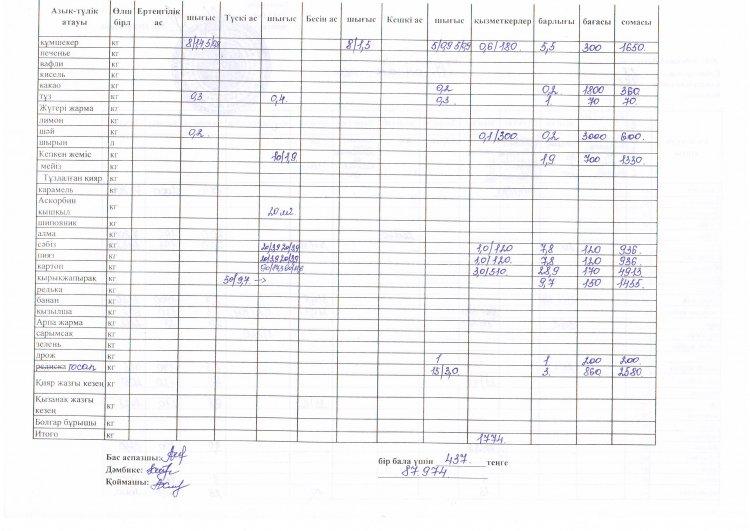 Азық-түлік атауы Өлш бірл Ертеңгілік ас шығыс Түскі ас шығыс Бесін ас шығыс Кешкі ас шығыс қызметкерлер барлығы бағасы сомасы
құмшекер кг 8/1,5 0,6/180 5,5 300 1650.
печенье кг
вафли кг
кисель кг
какао кг 0,2 0,2 1800 360
тұз кг 0,3 0,4. 0,3 1 70 70.
Жүгері жарма кг
лимон кг
шәй кг 0,2. 0,1/300 0,2 3000 600.
шырын л
Кепкен жеміс кг 10/1,9 1,9 700 1330.
мейіз кг
Тұздалған қияр кг
карамель кг
Аскорбин қышқыл кг
шиповник кг
алма кг
сәбіз кг 20/3,9 20/3,9 1,0/120 7,8 120 936.
пияз кг 20/3,9 20/3,9 1,0/120. 7,8 120 936.
картоп кг 3,0/510. 28,9 170 4913
қырыққапырақ кг 50/9,7 → 9,7 150 1455.
редька кг
банан кг
қызылша кг
Арпа жарма кг
сарымсақ кг
зелень кг
дрож кг 1 1 200 200.
редиска кг 15/3,0 3. 860 2580
Қияр жазғы кезең кг
Қызанақ жазғы кезең кг
Болгар бұрышы кг
Итого кг 1774.
Бас аспазшы:
бір бала үшін 437. теңге
Дәмбике:
87.974.
Қоймашы: